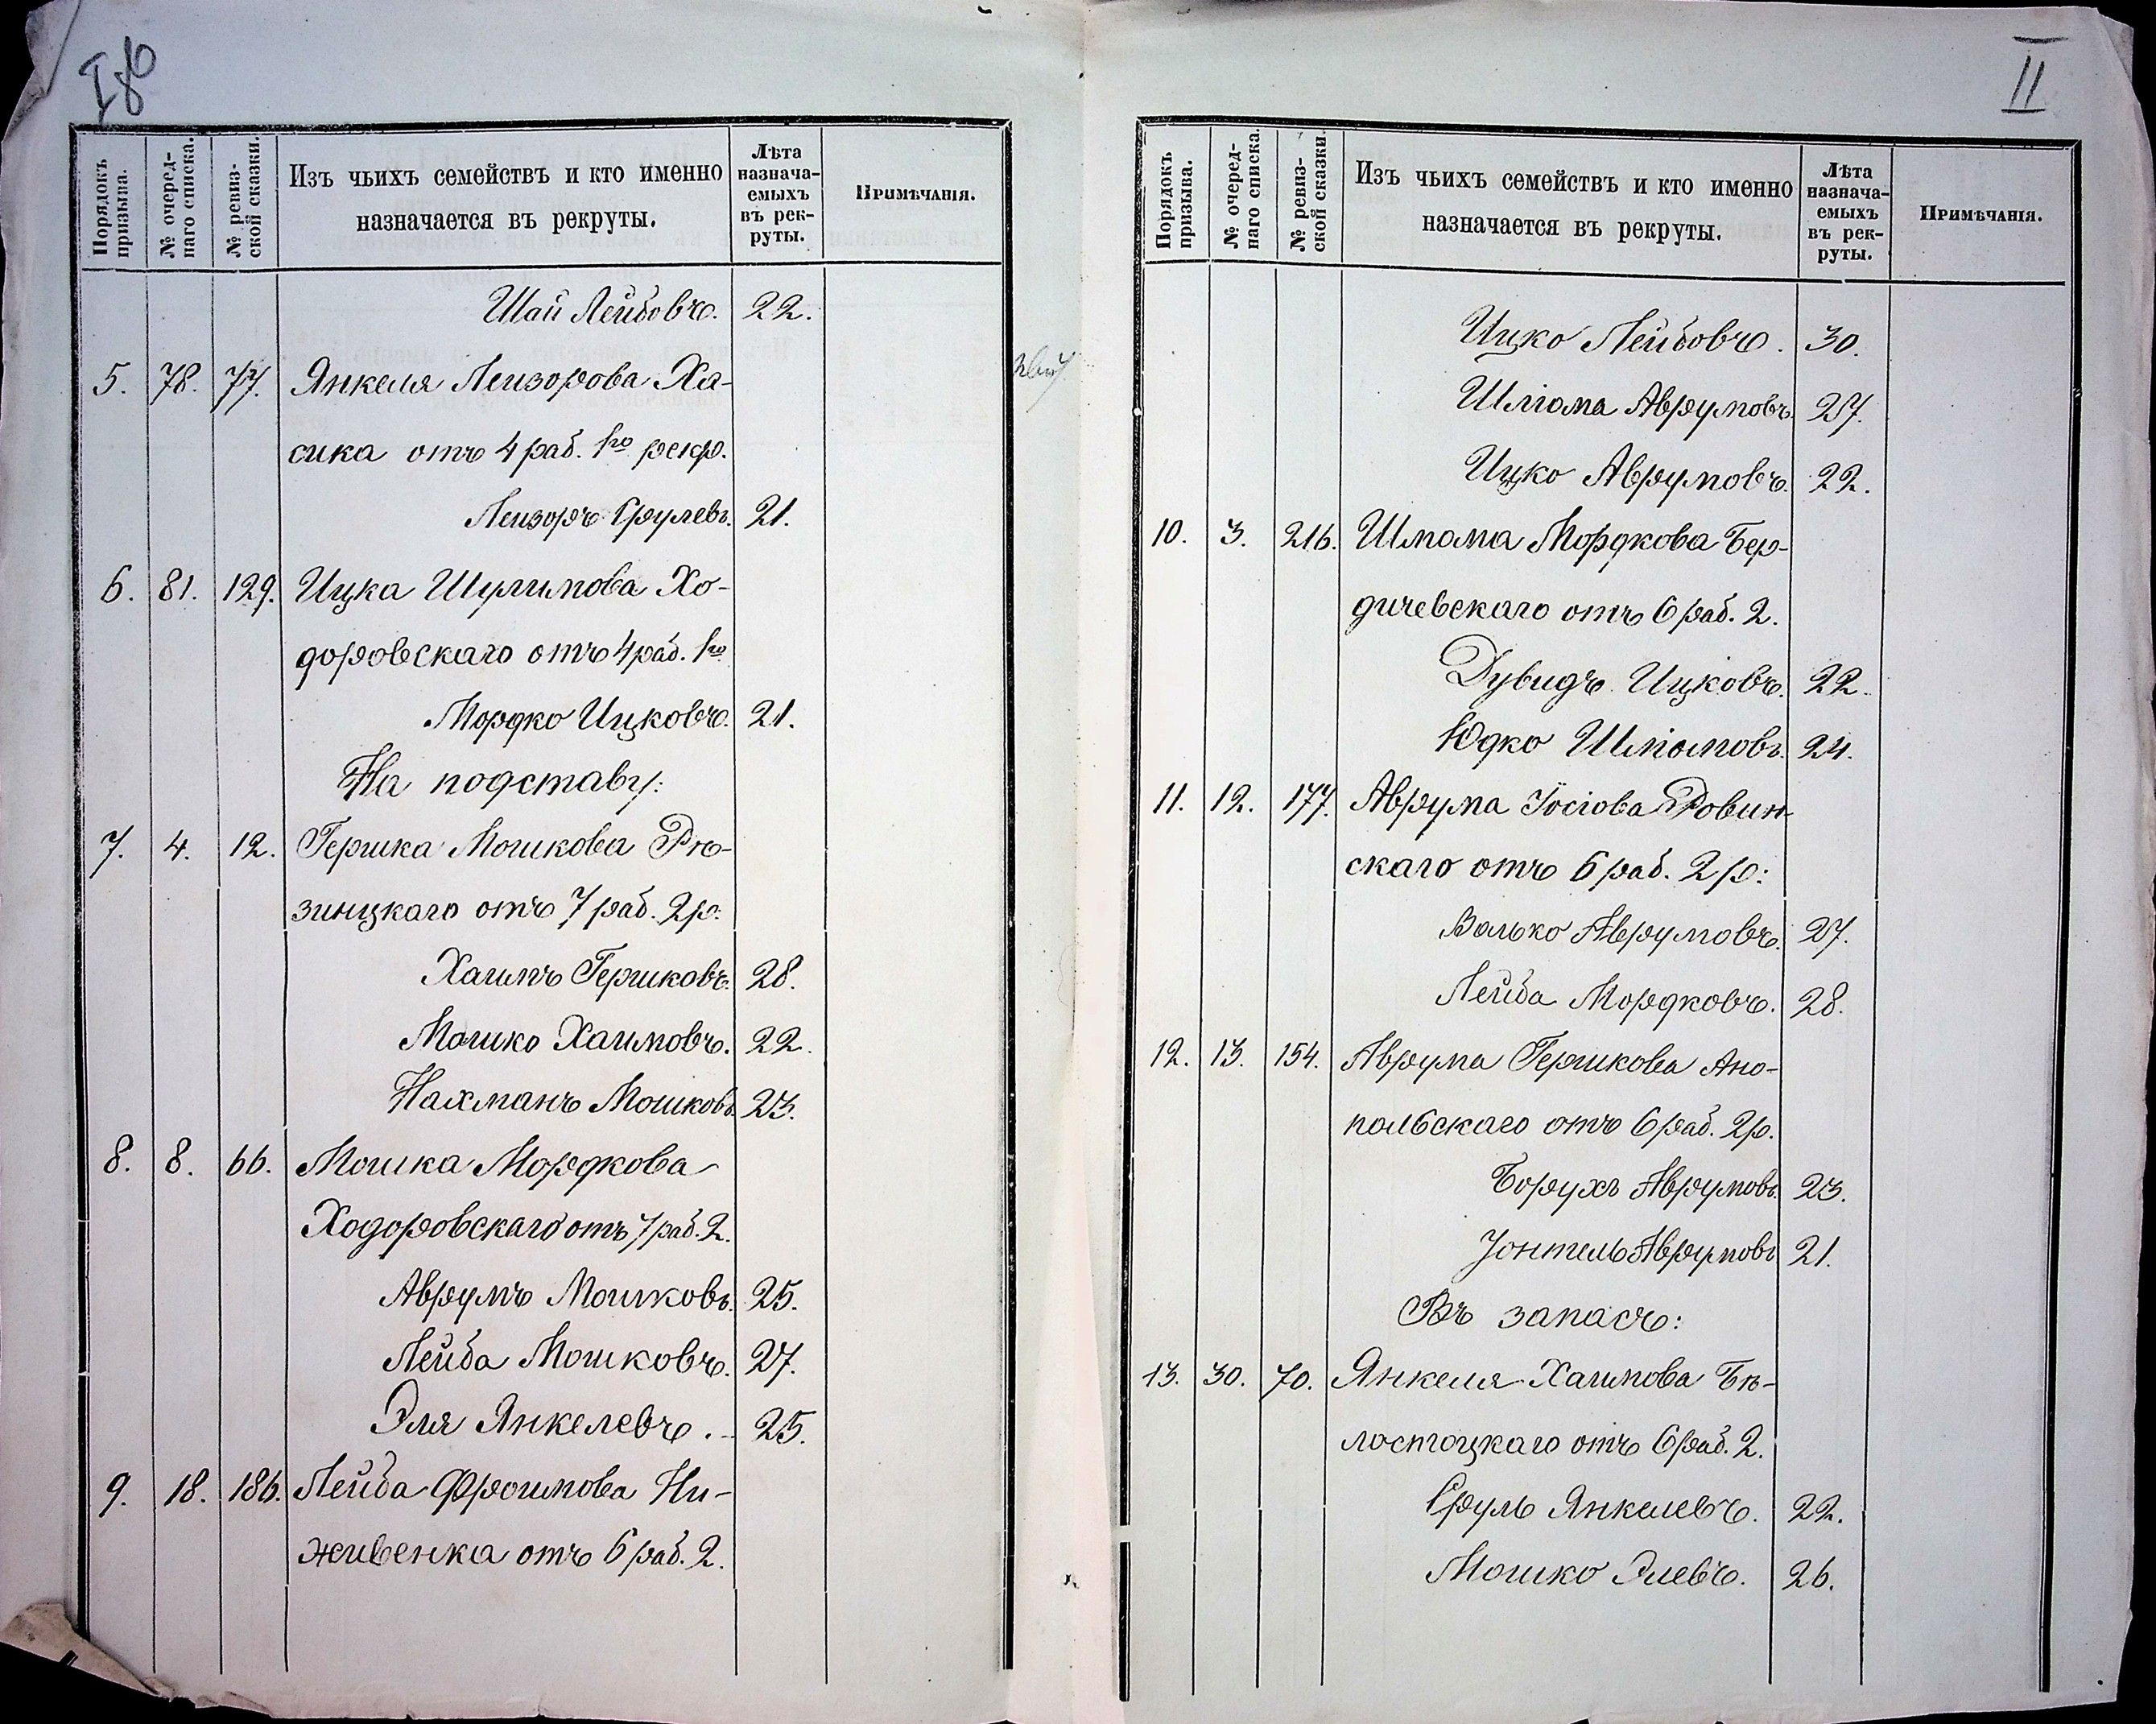 II
Порядокъ призыва.
№ очеред-
наго списка.
№ ревиз-
ской сказки.
Изъ чьихъ семействъ и кто именно
назначается въ рекруты.
Лѣта
назнача-
емыхъ
въ рек-
руты.
Примѣчанія.
Шай Лейбовъ. 22.
5. 78. 77. Янкеля Лейзорова Ха-
сика отъ 4 раб. 1го рекр.
Лейзоръ Срулевъ. 21.
6. 81. 129. Ицка Шулимова Хо-
доровскаго отъ 4 раб. 1го
Мордко Ицковъ. 21.
На подставу:
7. 4. 12. Гершка Мошкова Рю-
зинцкаго отъ 7 раб. 2 р.
Хаимъ Гершковъ. 28.
Мошко Хаимовъ. 22.
Нахманъ Мошковъ. 23.
8. 8. 66. Мошка Мордкова
Ходоровскаго отъ 7 раб. 2.
Аврумъ Мошковъ. 25.
Лейба Мошковъ. 27.
Эля Янкелевъ. 25.
9. 18. 186. Лейба Фроимова Ни-
живенка отъ 6 раб. 2.
Порядокъ призыва.
№ очеред-
наго списка.
№ ревиз-
ской сказки.
Изъ чьихъ семействъ и кто именно
назначается въ рекруты.
Лѣта
назнача-
емыхъ
въ рек-
руты.
Примѣчанія.
Ицко Лейбовъ. 30.
Шліома Аврумовъ 27.
Ицко Аврумовъ. 22.
10. 3. 216. Шлома Мордкова Бер-
дичевскаго отъ 6 раб. 2.
Дувидъ Ицковъ. 22.
Юдко Шліомовъ. 24.
11. 12. 177. Аврума Іосіова Ровин-
скаго отъ 6 раб. 2 р:
Волько Аврумовъ. 27.
Лейба Мордковъ. 28.
12. 13. 154. Аврума Гершкова Ано-
польскаго отъ 6 раб. 2 р.
Борухъ Аврумовъ. 23.
Іонтель Аврумовъ 21.
Въ запасъ:
13. 30. 70. Янкеля Хаимова Бѣ-
лостоцкаго отъ 6 раб. 2.
Сруль Янкелевъ. 22.
Мошко Элевъ. 26.